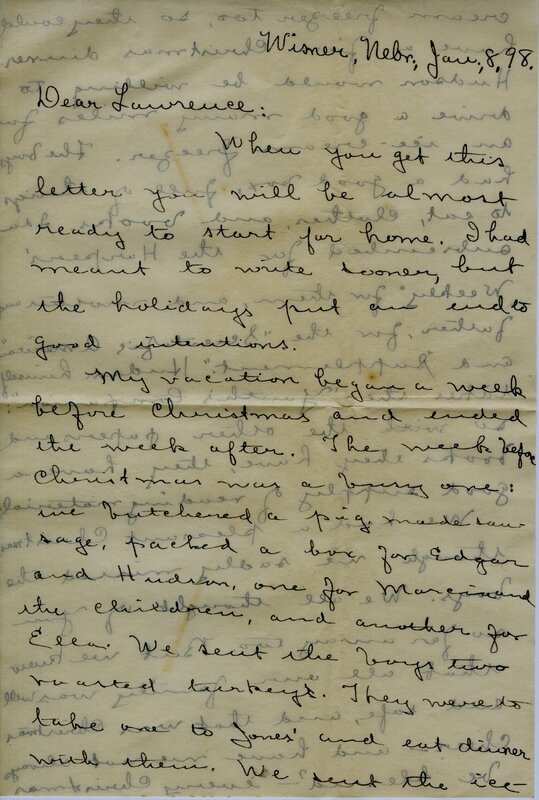 Wisner, Nebr., Jan., 8, 98.
Dear Lawrence:
When you get this
letter you will be almost
ready to start for home. I had
meant to write sooner, but
the holidays put an end to
good intentions.
My vacation began a week
before Christmas and ended
the week after. The week before
Christmas was a busy one:
we butchered a pig, made sau-
sage, packed a box for Edgar
and Hudson, one for Marcis and
the children, and another for
Ella. We sent the boys two
roasted turkeys. They were to
take one to Jones' and eat dinner
with them. We sent the ice-